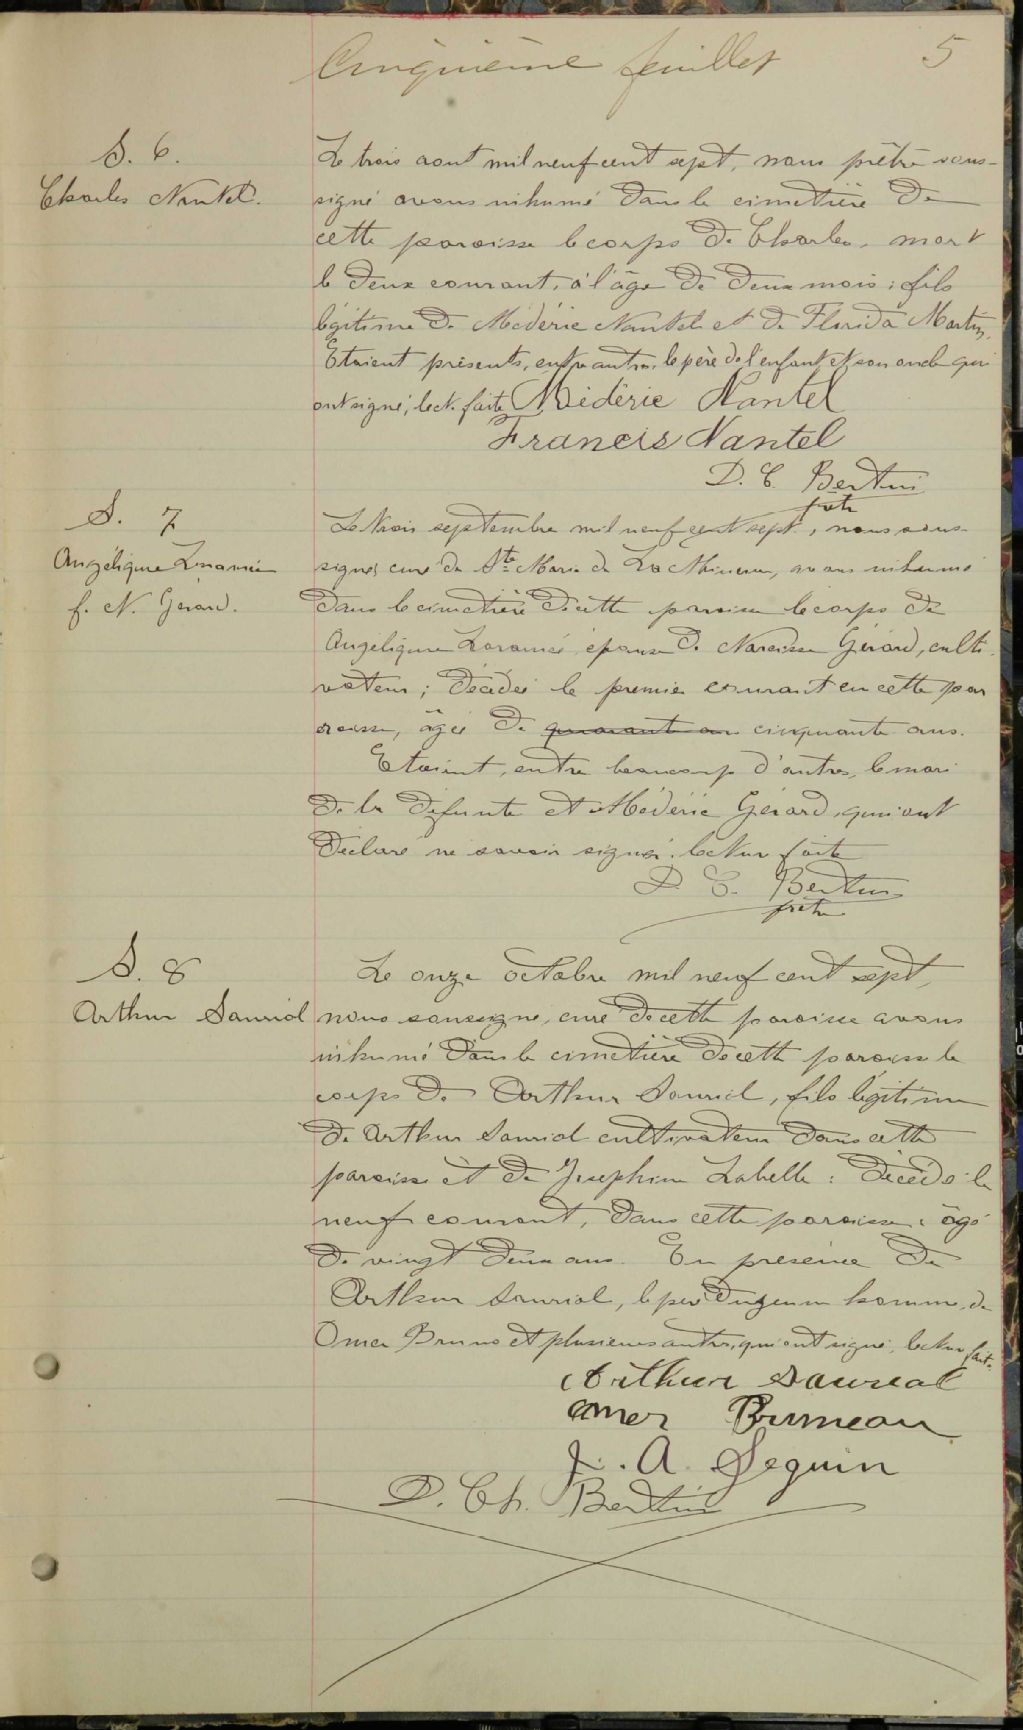 Cinquième feuillet 5
S. 6.
Charles Nantel.
Le trois aout mil neuf cent sept, nous prêtre sous-
signé avons inhumé dans le cimetière de
cette paroisse le corps de Charles, mort
le deux courant, à l'âge de deux mois; fils
légitime de Médéric Nantel et de Florida Martin.
Etaient présents, entre autres, le père de l'enfant et son oncle qui
ont signé, lect. faite Médéric Nantel
Francis Nantel
D. C. Bertin
ptre
S. 7
Angélique Laramée
f. N. Gérard.
Le trois septembre mil neuf cent sept, nous sous-
signé, curé de Ste Marie de La Minerve, avons inhumé
dans le cimetière de cette paroisse le corps de
Angélique Laramée, épouse de Narcisse Gérard, culti-
vateur; décédée le premier courant en cette par
oisse, âgée de quarante ans cinquante ans.
Etaient, entre beaucoup d'autres, le mari
de la défunte et Médéric Gérard, qui ont
déclaré ne savoir signer. lecture faite
D. C. Bertin
prêtre
S. 8
Arthur Sauriol
Le onze octobre mil neuf cent sept,
nous soussigné, curé de cette paroisse avons
inhumé dans le cimetière de cette paroisse le
corps de Arthur Sauriol, fils légitime
de Arthur Sauriol cultivateur dans cette
paroisse et de Josephine Labelle: décédé le
neuf courant, dans cette paroisse, âgé
de vingt deux ans. En présence de
Arthur Sauriol, le père du jeune homme, de
Omer Bruno et plusieurs autres, qui ont signé, lecture faite.
Arthur Saureal
omer Bruneau
J. A. Seguin
D. Ch. Bertin